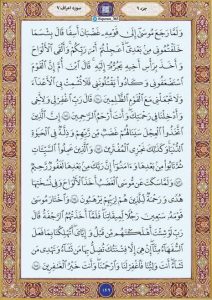 جزء ۹
سوره اعراف ۷
وَلَمَّا رَجَعَ مُوسَىٰٓ إِلَىٰ قَوْمِهِۦ غَضْبَٰنَ أَسِفًا قَالَ بِئْسَمَا
خَلَفْتُمُونِى مِنۢ بَعْدِىٓ أَعَجِلْتُمْ أَمْرَ رَبِّكُمْ وَأَلْقَى ٱلْأَلْوَاحَ
وَأَخَذَ بِرَأْسِ أَخِيهِ يَجُرُّهُۥٓ إِلَيْهِ قَالَ ٱبْنَ أُمَّ إِنَّ ٱلْقَوْمَ
ٱسْتَضْعَفُونِى وَكَادُوا۟ يَقْتُلُونَنِى فَلَا تُشْمِتْ بِىَ ٱلْأَعْدَآءَ
وَلَا تَجْعَلْنِى مَعَ ٱلْقَوْمِ ٱلظَّٰلِمِينَ ۝ قَالَ رَبِّ ٱغْفِرْ لِى وَلِأَخِى
وَأَدْخِلْنَا فِى رَحْمَتِكَ وَأَنتَ أَرْحَمُ ٱلرَّٰحِمِينَ ۝ إِنَّ ٱلَّذِينَ
ٱتَّخَذُوا۟ ٱلْعِجْلَ سَيَنَالُهُمْ غَضَبٌ مِّن رَّبِّهِمْ وَذِلَّةٌ فِى ٱلْحَيَوٰةِ
ٱلدُّنْيَا وَكَذَٰلِكَ نَجْزِى ٱلْمُفْتَرِينَ ۝ وَٱلَّذِينَ عَمِلُوا۟ ٱلسَّيِّـَٔاتِ
ثُمَّ تَابُوا۟ مِنۢ بَعْدِهَا وَءَامَنُوٓا۟ إِنَّ رَبَّكَ مِنۢ بَعْدِهَا لَغَفُورٌ رَّحِيمٌ ۝
وَلَمَّا سَكَتَ عَن مُّوسَى ٱلْغَضَبُ أَخَذَ ٱلْأَلْوَاحَ وَفِى نُسْخَتِهَا
هُدًى وَرَحْمَةٌ لِّلَّذِينَ هُمْ لِرَبِّهِمْ يَرْهَبُونَ ۝ وَٱخْتَارَ مُوسَىٰ
قَوْمَهُۥ سَبْعِينَ رَجُلًا لِّمِيقَٰتِنَا فَلَمَّآ أَخَذَتْهُمُ ٱلرَّجْفَةُ قَالَ
رَبِّ لَوْ شِئْتَ أَهْلَكْتَهُم مِّن قَبْلُ وَإِيَّٰىَ أَتُهْلِكُنَا بِمَا فَعَلَ
ٱلسُّفَهَآءُ مِنَّآ إِنْ هِىَ إِلَّا فِتْنَتُكَ تُضِلُّ بِهَا مَن تَشَآءُ وَتَهْدِى مَن
تَشَآءُ أَنتَ وَلِيُّنَا فَٱغْفِرْ لَنَا وَٱرْحَمْنَا وَأَنتَ خَيْرُ ٱلْغَٰفِرِينَ ۝
۱۶۹